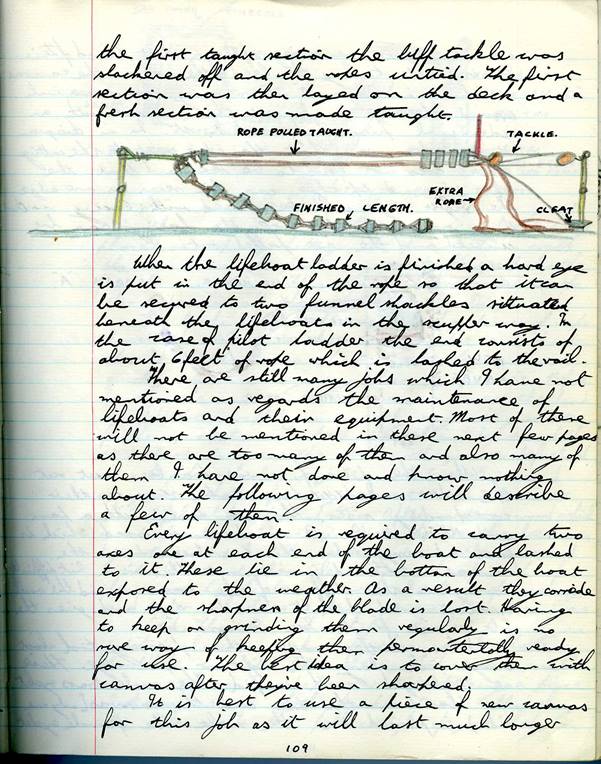 the first taught section the luff tackle was
slackened off and the ropes untied. The first
section was then layed on the deck and a
fresh section was made taught.
ROPE PULLED TAUGHT.
TACKLE.
EXTRA
ROPE
FINISHED LENGTH.
CLEAT
When the lifeboat ladder is finished a hard eye
is put in the end of the rope so that it can
be secured to two funnel shackles situated
beneath the lifeboats in the scupper way. In
the case of pilot ladder the end consists of
about 6 feet of rope which is lashed to the rail.
There are still many jobs which I have not
mentioned as regards the maintenance of
lifeboats and their equipment. Most of these
will not be mentioned in these next few pages
as there are too many of them and also many of
them I have not done and know nothing
about. The following pages will describe
a few of them.
Every lifeboat is required to carry two
axes one at each end of the boat and lashed
to it. These lie in the bottom of the boat
exposed to the weather. As a result they corrode
and the sharpness of the blade is lost. Having
to keep on grinding them regularly is no
sure way of keeping them ready
for use. The best idea is to cover them with
canvas after they've been sharpened.
It is best to use a piece of new canvas
for this job as it will last much longer
109